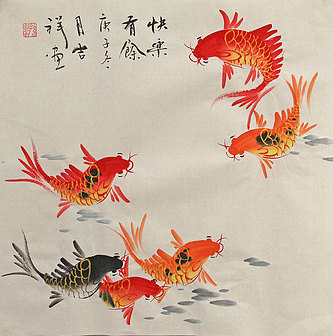 快樂
有餘
庚子冬
月吉
祥畫